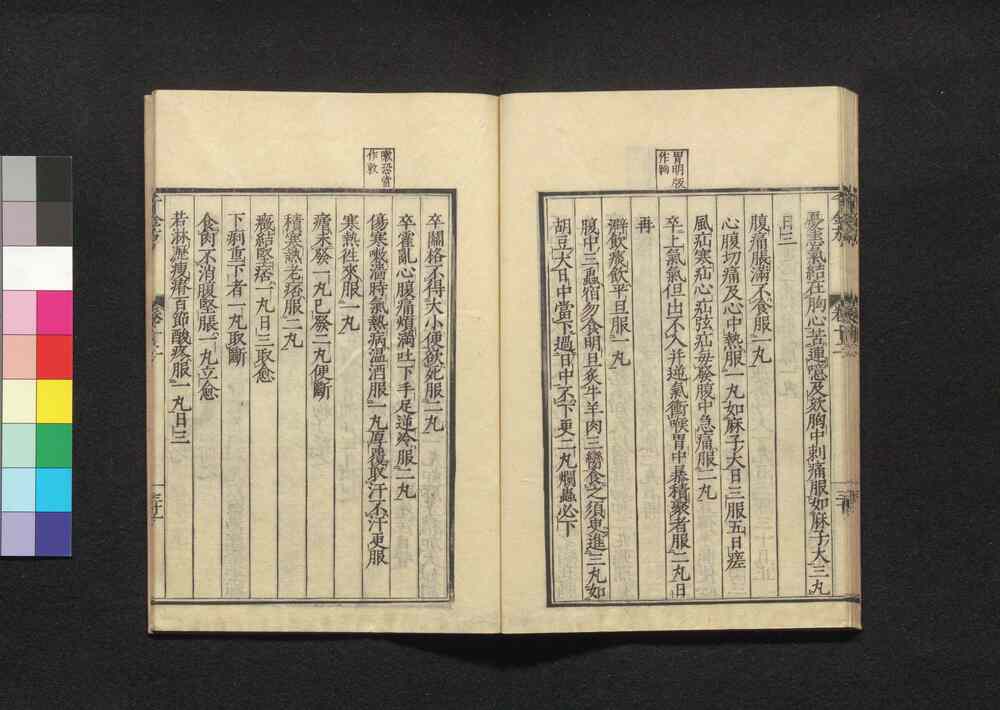 胃明版
作胸
憂恚氣結在胸心苦連噫及欬胸中刺痛服如麻子大三丸
日三
腹痛脹滿不食服一丸
心腹切痛及心中熱服一丸如麻子大日三服五日瘥
風疝寒疝心疝弦疝每發腹中急痛服二丸
卒上氣氣但出不入并逆氣衝喉胃中暴積聚者服二丸日
再
澼飲痰飲平旦服一丸
腹中三蟲宿勿食明旦炙牛羊肉三臠食之須臾進三丸如
胡豆大日中當下過日中不下更二丸爛蟲必下
嗽恐當
作欬
卒關格不得大小便欲死服二丸
卒霍亂心腹痛煩滿吐下手足逆冷服二丸
傷寒嗽濇時氣熱病温酒服一丸厚覆取汗不汗更服
寒熱徃來服一丸
瘧未發一丸已發二丸便斷
積寒熱老痞服二丸
癥結堅痞一丸日三取愈
下利重下者一丸取斷
食肉不消腹堅脹一丸立愈
若淋瀝瘦瘠百節酸疼服一丸日三